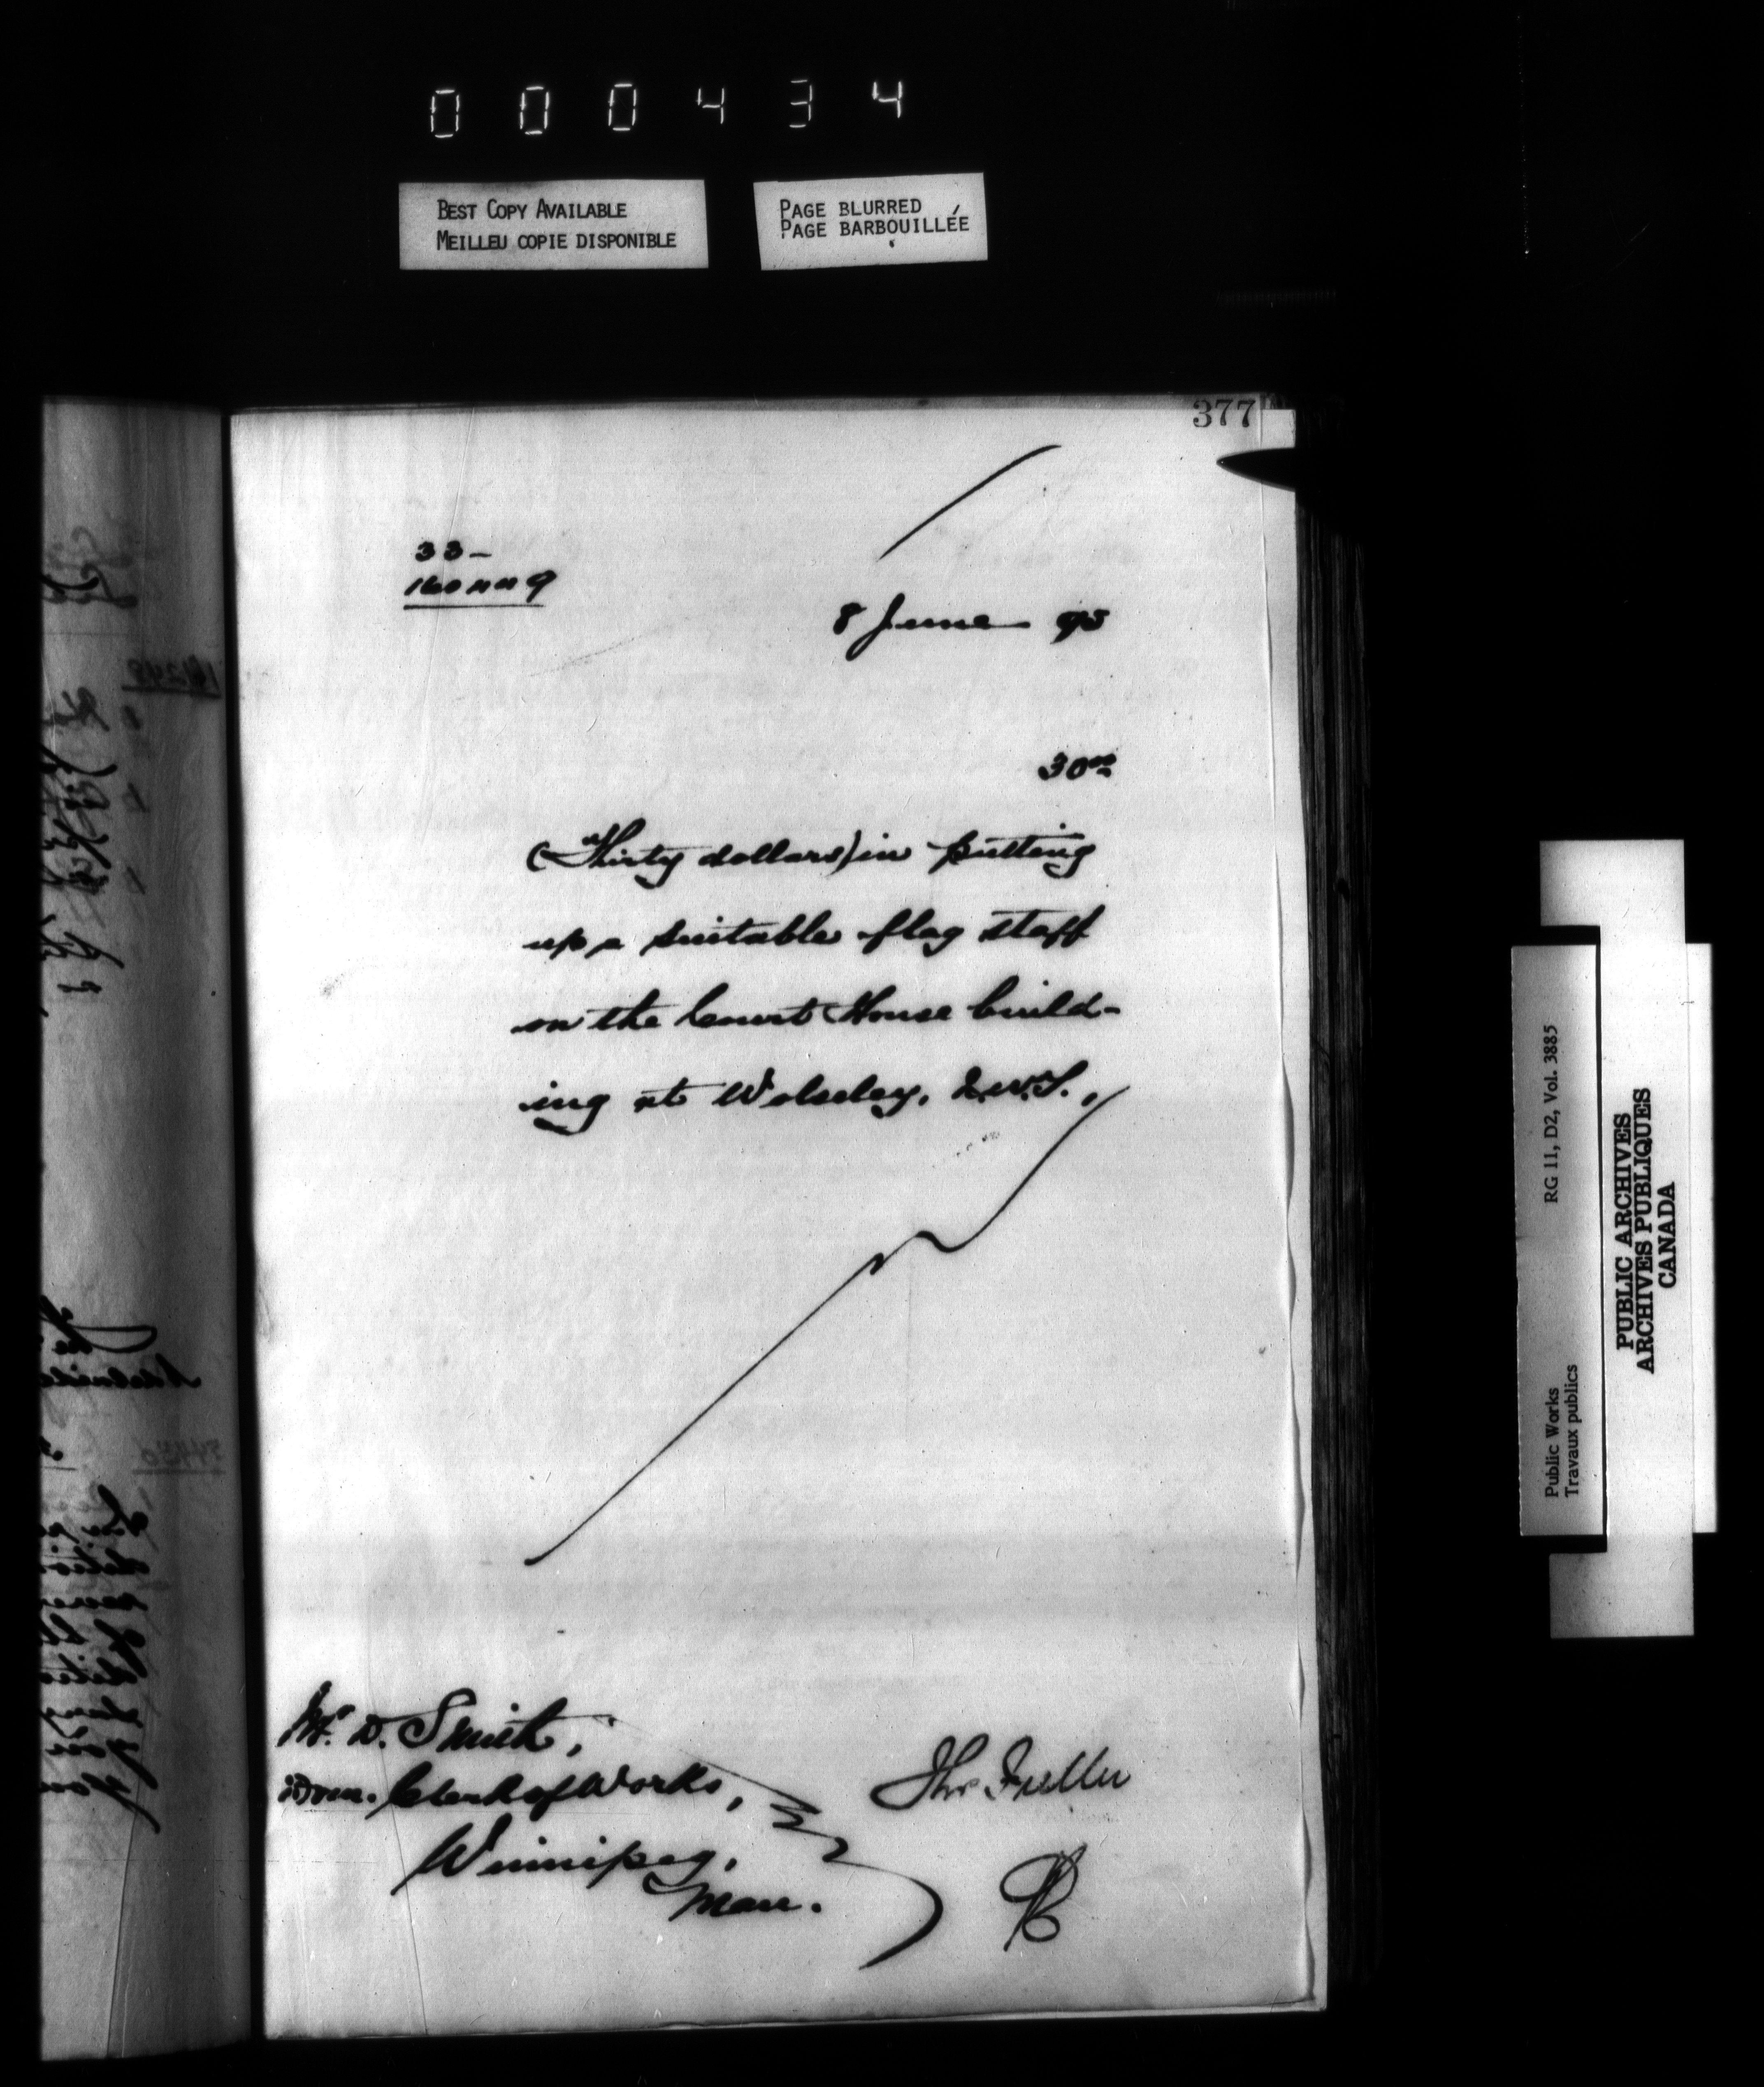 000434
BEST COPY AVAILABLE
MEILLEU COPIE DISPONIBLE
PAGE BLURRED
PAGE BARBOUILLÉE
377
33-
8 June 95
30 00
(Thirty dollars) in putting
up a suitable flag staff
on the Court House build-
ing at Wolseley, N.W.T.,
Mr. D. Smith,
Dom. Clerk of Works,
Winnipeg,
Man.
Thos Fuller
RG 11, D2, Vol. 3885
Public Works
Travaux publics
PUBLIC ARCHIVES
ARCHIVES PUBLIQUES
CANADA